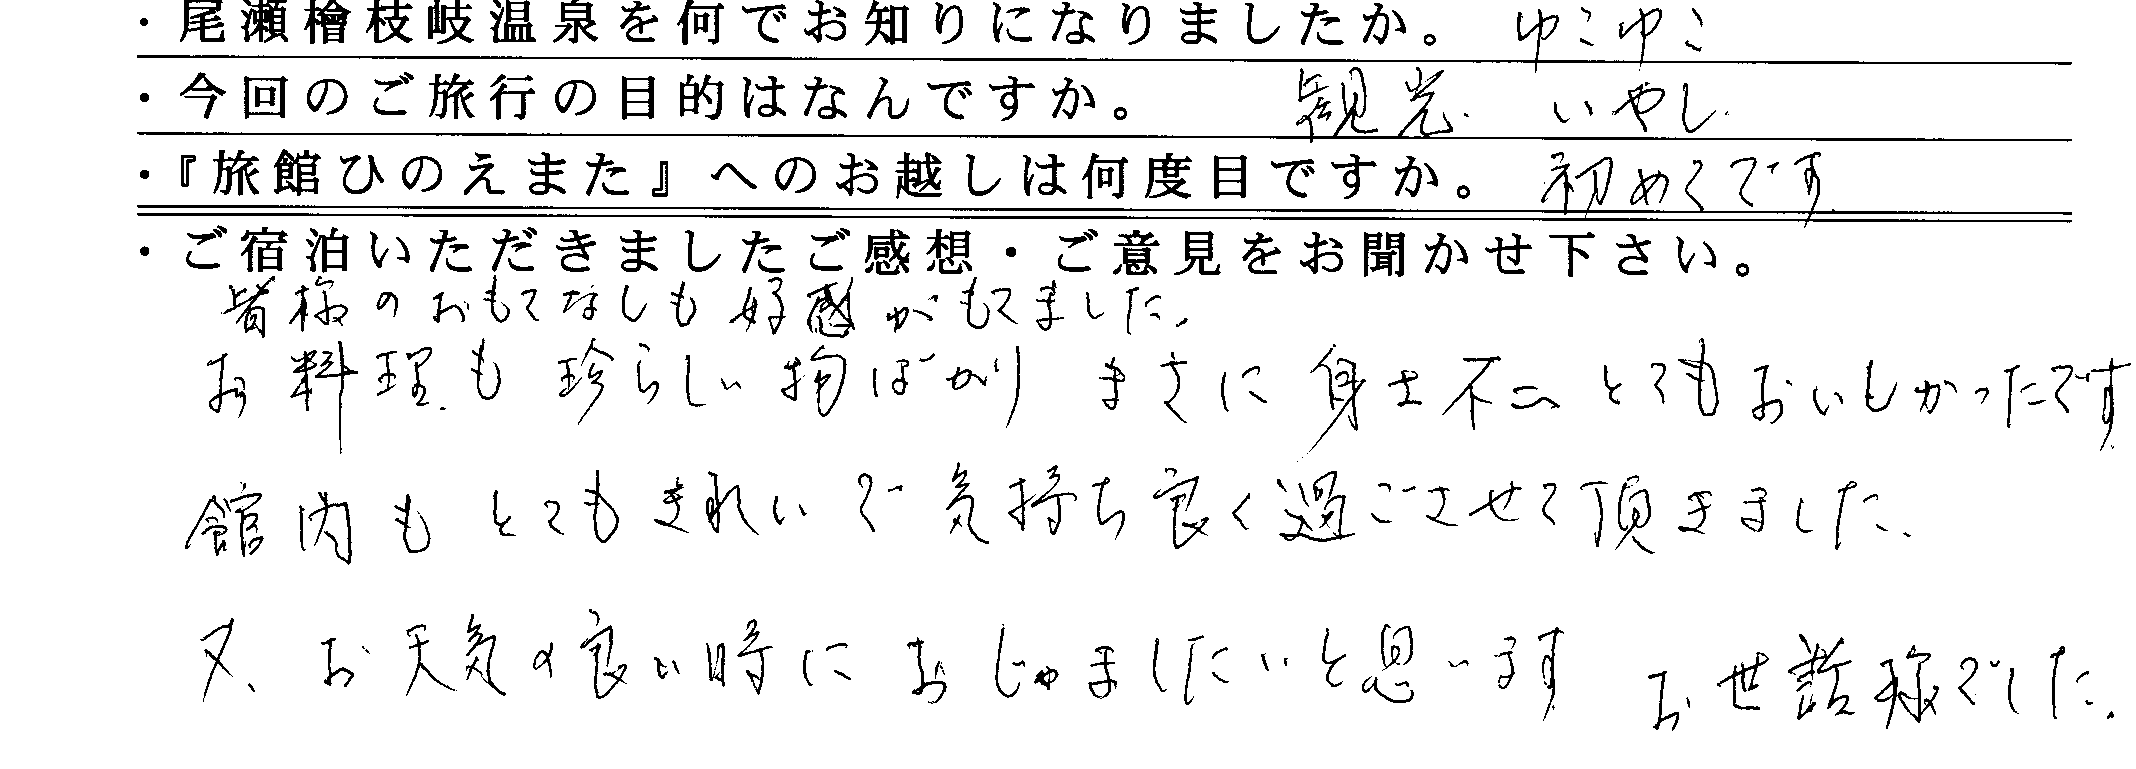 ・尾瀬檜枝岐温泉を何でお知りになりましたか。 ゆこゆこ
・今回のご旅行の目的はなんですか。 観光. いやし.
・『旅館ひのえまた』へのお越しは何度目ですか。 初めてです
・ご宿泊いただきましたご感想・ご意見をお聞かせ下さい。
皆様のおもてなしも好感がもてました。
お料理も珍らしい物ばかり まさに身土不二 とてもおいしかったです
館内もとてもきれいで気持ち良く過ごさせて頂きました。
又、お天気の良い時におじゃましたいと思います お世話様でした。